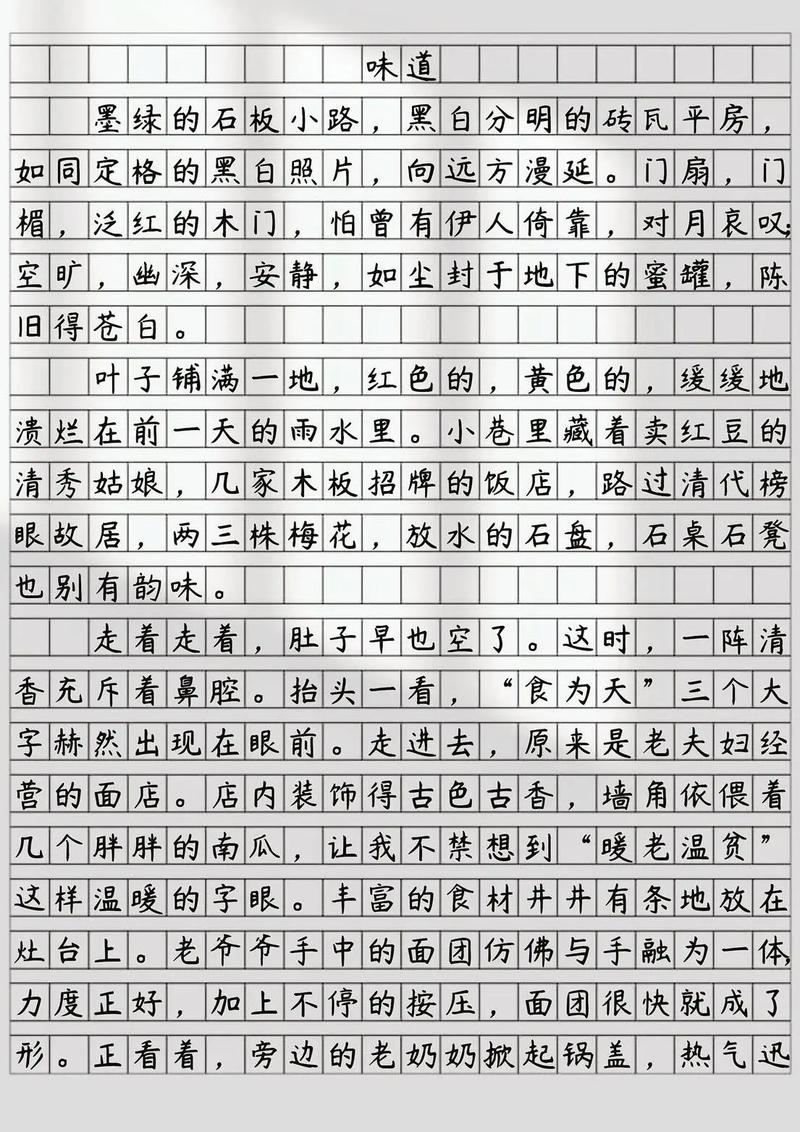 味道
墨绿的石板小路，黑白分明的砖瓦平房，
如同定格的黑白照片，向远方漫延。门扇，门
楣，泛红的木门，怕曾有伊人倚靠，对月哀叹；
空旷，幽深，安静，如尘封于地下的蜜罐，陈
旧得苍白。
叶子铺满一地，红色的，黄色的，缓缓地
溃烂在前一天的雨水里。小巷里藏着卖红豆的
清秀姑娘，几家木板招牌的饭店，路过清代榜
眼故居，两三株梅花，放水的石盘，石桌石凳
也别有韵味。
走着走着，肚子早也空了。这时，一阵清
香充斥着鼻腔。抬头一看，“食为天”三个大
字赫然出现在眼前。走进去，原来是老夫妇经
营的面店。店内装饰得古色古香，墙角依偎着
几个胖胖的南瓜，让我不禁想到“暖老温贫”
这样温暖的字眼。丰富的食材井井有条地放在
灶台上。老爷爷手中的面团仿佛与手融为一体，
力度正好，加上不停的按压，面团很快就成了
形。正看着，旁边的老奶奶掀起锅盖，热气迅